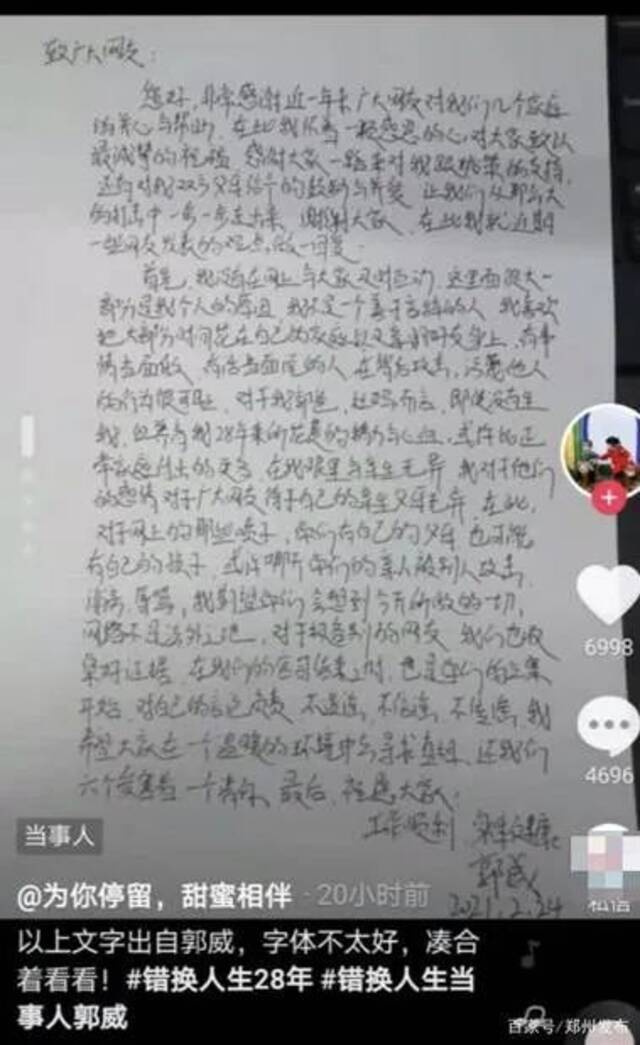 致广大网友:
您好,非常感谢近一年来广大网友对我们几个家庭
的关心与帮助,在此我怀着一颗感恩的心,对大家致以
最诚挚的祝福 感谢大家一路来对我跟姚策的支持,
还有对我双方父母给予的鼓励与关爱 让我们从那么大
的打击中一步一步走出来 谢谢大家 在此我就近期
一些网友发表的观点,做一回复
首先,我没有在网上与大家及时互动 这里面很大一
部分是我个人的原因 我不是一个善于言辞的人 我喜欢
把大部分时间花在自己的家庭以及亲朋好友身上,有事
情当面做 有话当面说的人 在背后攻击,污蔑他人
的行为很可耻,对于我郭爸,赵妈而言,即使没有生
我,但养育我28年来所花费的精力与心血,或许比正
常家庭付出的更多 在我眼里与亲生无异 我对于他们
的感情对于广大网友待于自己的亲生父母无异 在此,
对于网上的那些喷子,你们有自己的父母 也可能
有自己的孩子,或许哪斤你们的亲人被别人攻击,
诽谤,辱骂,我期望你们会想到今天所做的一切,
网络不是法外之地,对于极个别的网友 我们也收
集好证据 在我们的官司结束之时,也是你们的
开始 对自己的言论负责 不造谣,不信谣,不传谣,我
希望大家在一个温暖的环境中与寻求真相,还我们
六个受害者一个清白 最后,祝愿大家:
工作顺利 身体健康
郭威
2021.2.24
6998
4696
当事人
私信
@为你停留,甜蜜相伴 · 20小时前
以上文字出自郭威,字体不太好,凑合
着看看!#错换人生28年 #错换人生当
事人郭威
百家号/郑州发布